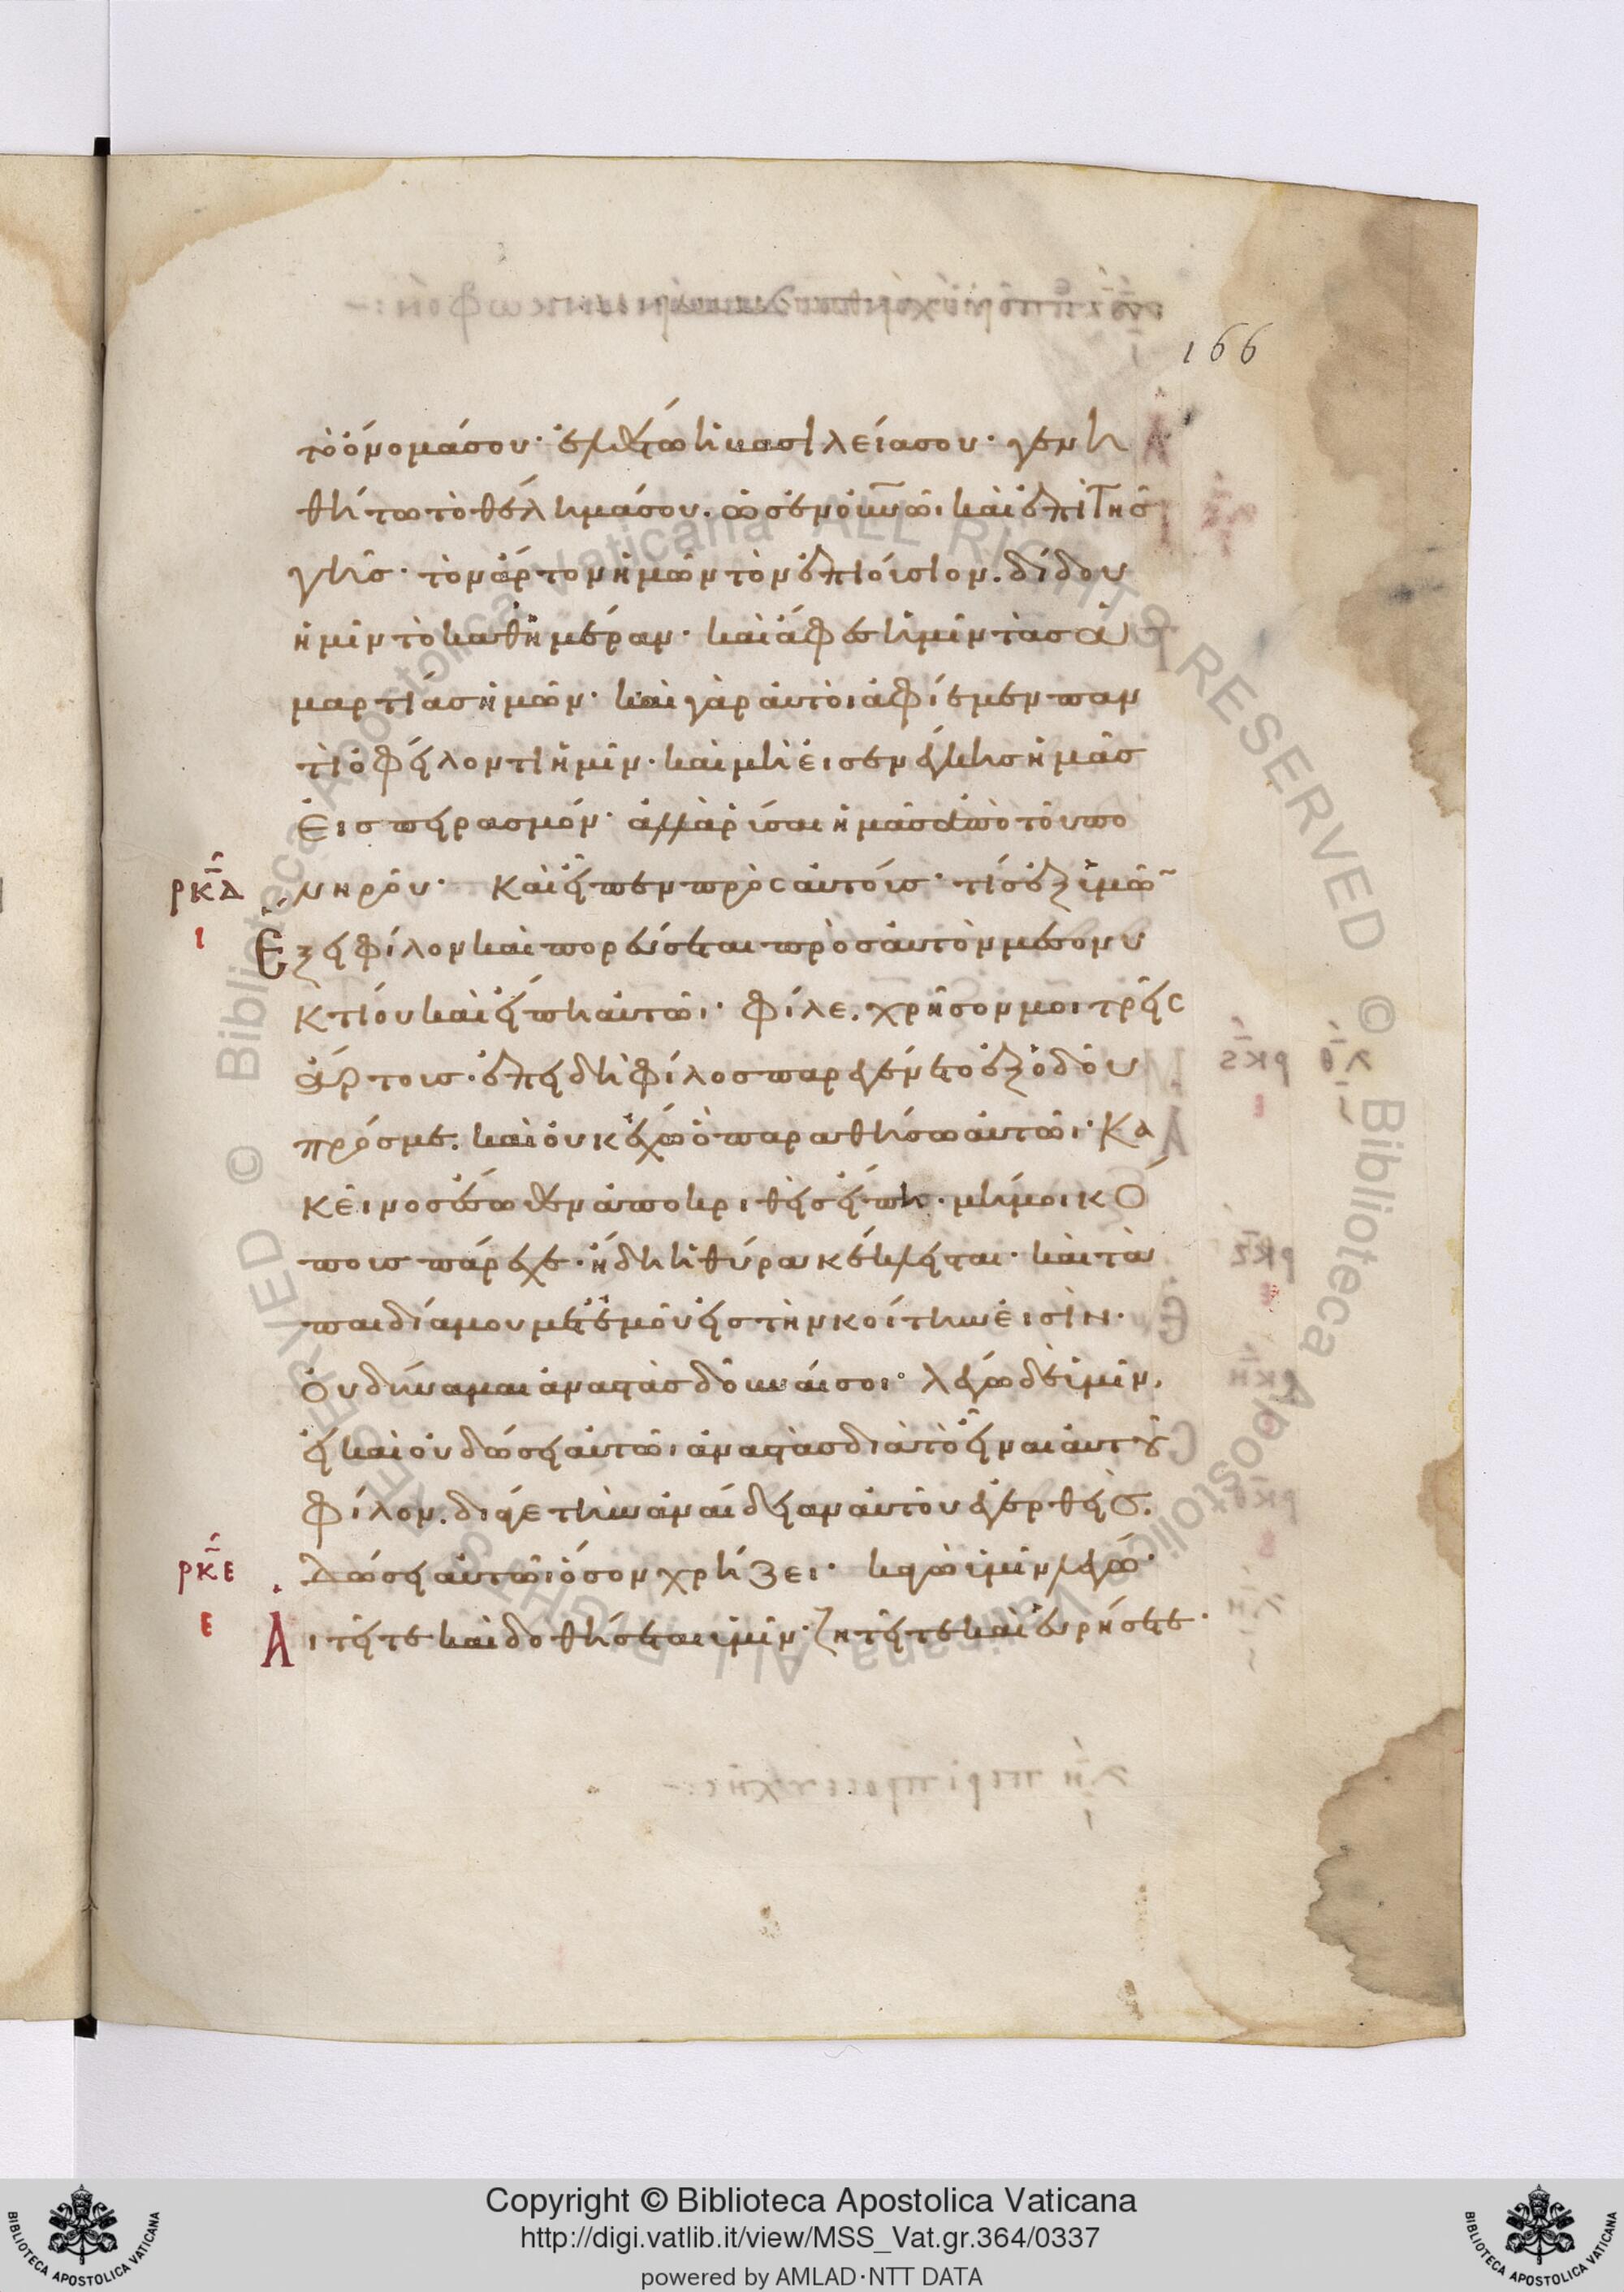 166
τὸ ὄνομά σου· ἐλθέτω ἡ βασιλεία σου· γενη
θήτω τὸ θέλημά σου. ὡς ἐν οὐνῶι καὶ ἐπὶ τῆς
γῆς· τὸν ἄρτον ἡμῶν τὸν ἐπιούσιον. δίδου
ἡμῖν τὸ καθ ἡμέραν· καὶ ἄφες ἡμῖν τὰς ἁ
μαρτίας ἡμῶν· καὶ γὰρ αὐτοὶ ἀφίεμεν παν
τὶ ὀφείλοντι ἡμῖν· καὶ μὴ εἰσενέγκης ἡμᾶς
εἰς πειρασμόν· ἀλλὰ ῥῦσαι ἡμᾶς ἀπὸ τοῦ πο
ρκδ νηροῦ· Καὶ εἶπεν πρὸς αὐτούς· τίς ἐξ ὑμῶ
ι Ἕξει φίλον καὶ πορεύσεται πρὸς αὐτὸν μεσονυ
κτίου καὶ εἴπη αὐτῶι· φίλε. χρῆσόν μοι τρεῖς
ἄρτους· ἐπειδὴ φίλος παρεγένετο ἐξ ὁδοῦ
πρός με. καὶ οὐκ ἔχω ὃ παραθήσω αὐτῶι· Κα
κεῖνος ἔσωθεν ἀποκριθεὶς εἴπη. μή μοι κό
πους πάρεχε· ἤδη ἡ θύρα κέκλεισται· καὶ τὰ
παιδία μου μετ ἐμοῦ εἰς τὴν κοίτην εἰσὶν·
οὐ δύναμαι ἀναστὰς δοῦναί σοι· λέγω δὲ ὑμῖν.
εἰ καὶ οὐ δώσει αὐτῶι ἀναστὰς διὰ τὸ εἶναι αὐτοῦ
φίλον. διά γε τὴν ἀναίδειαν αὐτοῦ ἐγερθεὶς.
ρκε δώσει αὐτῶι ὅσον χρήζει· κἀγὼ ὑμῖν λέγω·
ε Αἰτεῖτε καὶ δοθήσεται ὑμῖν· ζητεῖτε καὶ εὑρήσετε·
Copyright © Biblioteca Apostolica Vaticana
http://digi.vatlib.it/view/MSS_Vat.gr.364/0337
powered by AMLAD·NTT DATA